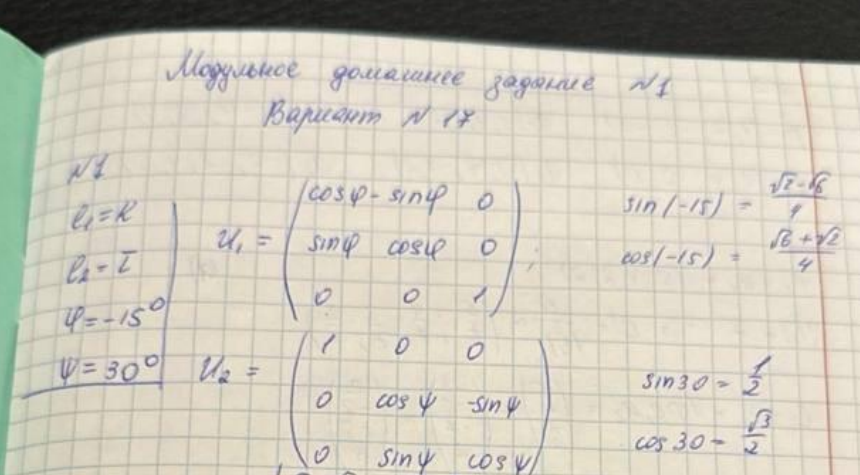 Модульное домашнее задание №1
Вариант №17
№1
l₁=k
l₂=i
φ=-15°
ψ=30°
U₁ = (cosφ -sinφ 0
sinφ cosφ 0
0 0 1);
sin(-15) = (√2-√6)/4
cos(-15) = (√6+√2)/4
U₂ = (1 0 0
0 cosψ -sinψ
0 sinψ cosψ)
sin30 = 1/2
cos30 = √3/2